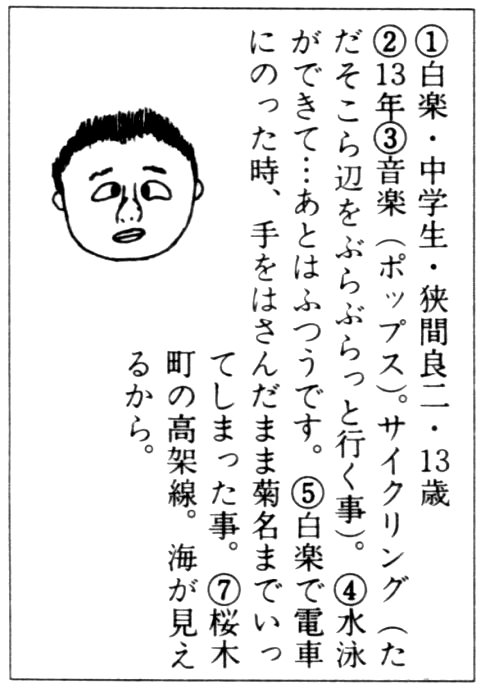 ①白楽・中学生・狭間良二・13歳
②13年③音楽（ポップス）。サイクリング（た
だそこら辺をぶらぶらっと行く事）。④水泳
ができて…あとはふつうです。⑤白楽で電車
にのった時、手をはさんだまま菊名までいっ
てしまった事。⑦桜木
町の高架線。海が見え
るから。